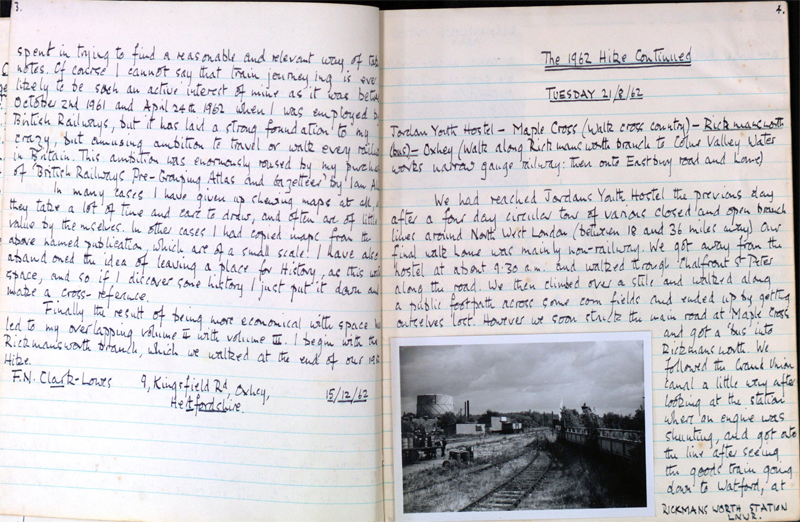 3.
spent in trying to find a reasonable and relevant way of
notes. Of course I cannot say that train journeying is ever
likely to be such an active interest of mine as it was
October 2nd 1961 and April 24th 1962 when I was employed
British Railways, but it has laid a strong foundation to my
crazy, but amusing ambition to travel or walk every
in Britain. This ambition was enormously roused by my
of 'British Railways Pre-Grouping Atlas and Gazetteer' by Ian
In many cases I have given up shewing maps at all,
they take a lot of time and care to draw, and often are of little
value by themselves. In other cases I had copied maps from the
above named publication, which are of a small scale. I have also
abandoned the idea of leaving a place for History, as this
space, and so if I discover some history I just put it down and
make a cross-reference.
Finally the result of being more economical with space
led to my overlapping volume II with volume III. I begin with the
Rickmansworth branch, which we walked at the end of our
Hike.
F.N. Clark-Lowes 9, Kingsfield Rd, Oxhey, 15/12/62
Hertfordshire.
4.
The 1962 Hike Continued
TUESDAY 21/8/62
Jordan Youth Hostel - Maple Cross (Walk cross country) - Rickmansworth
(bus) - Oxhey (Walk along Rickmansworth branch to Colne Valley Water
works narrow gauge railway: then onto Eastbury road and home)
We had reached Jordans Youth Hostel the previous day
after a four day circular tour of various closed and open branch
lines around North West London (between 18 and 26 miles away) Our
final walk home was mainly non-railway. We got away from the
hostel at about 9.30 a.m. and walked through Chalfront St Peter
along the road. We then climbed over a stile and walked along
a public footpath across some corn fields and ended up by getting
ourselves lost. However we soon struck the main road at Maple Cross
and got a bus into
Rickmansworth. We
followed the Grand Union
canal a little way after
looking at the station
where an engine was
shunting, and got onto
the line after seeing
the goods train going
down to Watford, at
RICKMANSWORTH STATION
L.N.W.R.